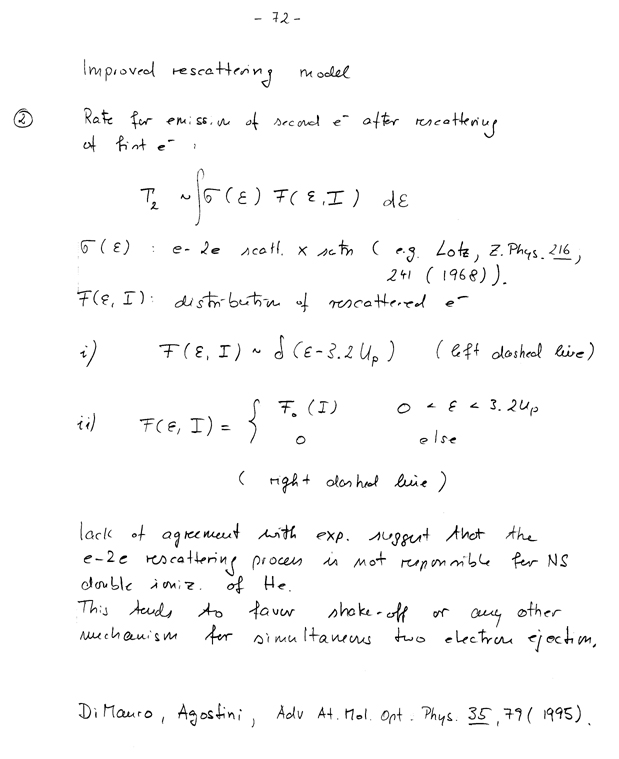 - 72 -
Improved rescattering model
② Rate for emission of second e⁻ after rescattering
of first e⁻ :
T₂ ~ ∫σ(ε) F(ε,I) dε
σ(ε) : e-2e scatt. x sctn (e.g. Lotz, Z. Phys. 216,
241 (1968)).
F(ε, I): distribution of rescattered e⁻
i) F(ε, I) ~ δ(ε-3.2Up) (left dashed line)
ii) F(ε, I) = { F₀(I) 0 < ε < 3.2Up
0 else
(right dashed line)
lack of agreement with exp. suggest that the
e-2e rescattering process is not responsible for NS
double ioniz. of He.
This tends to favor shake-off or any other
mechanism for simultaneous two electron ejection.
DiMauro, Agostini, Adv At. Mol. Opt. Phys. 35, 79 (1995).